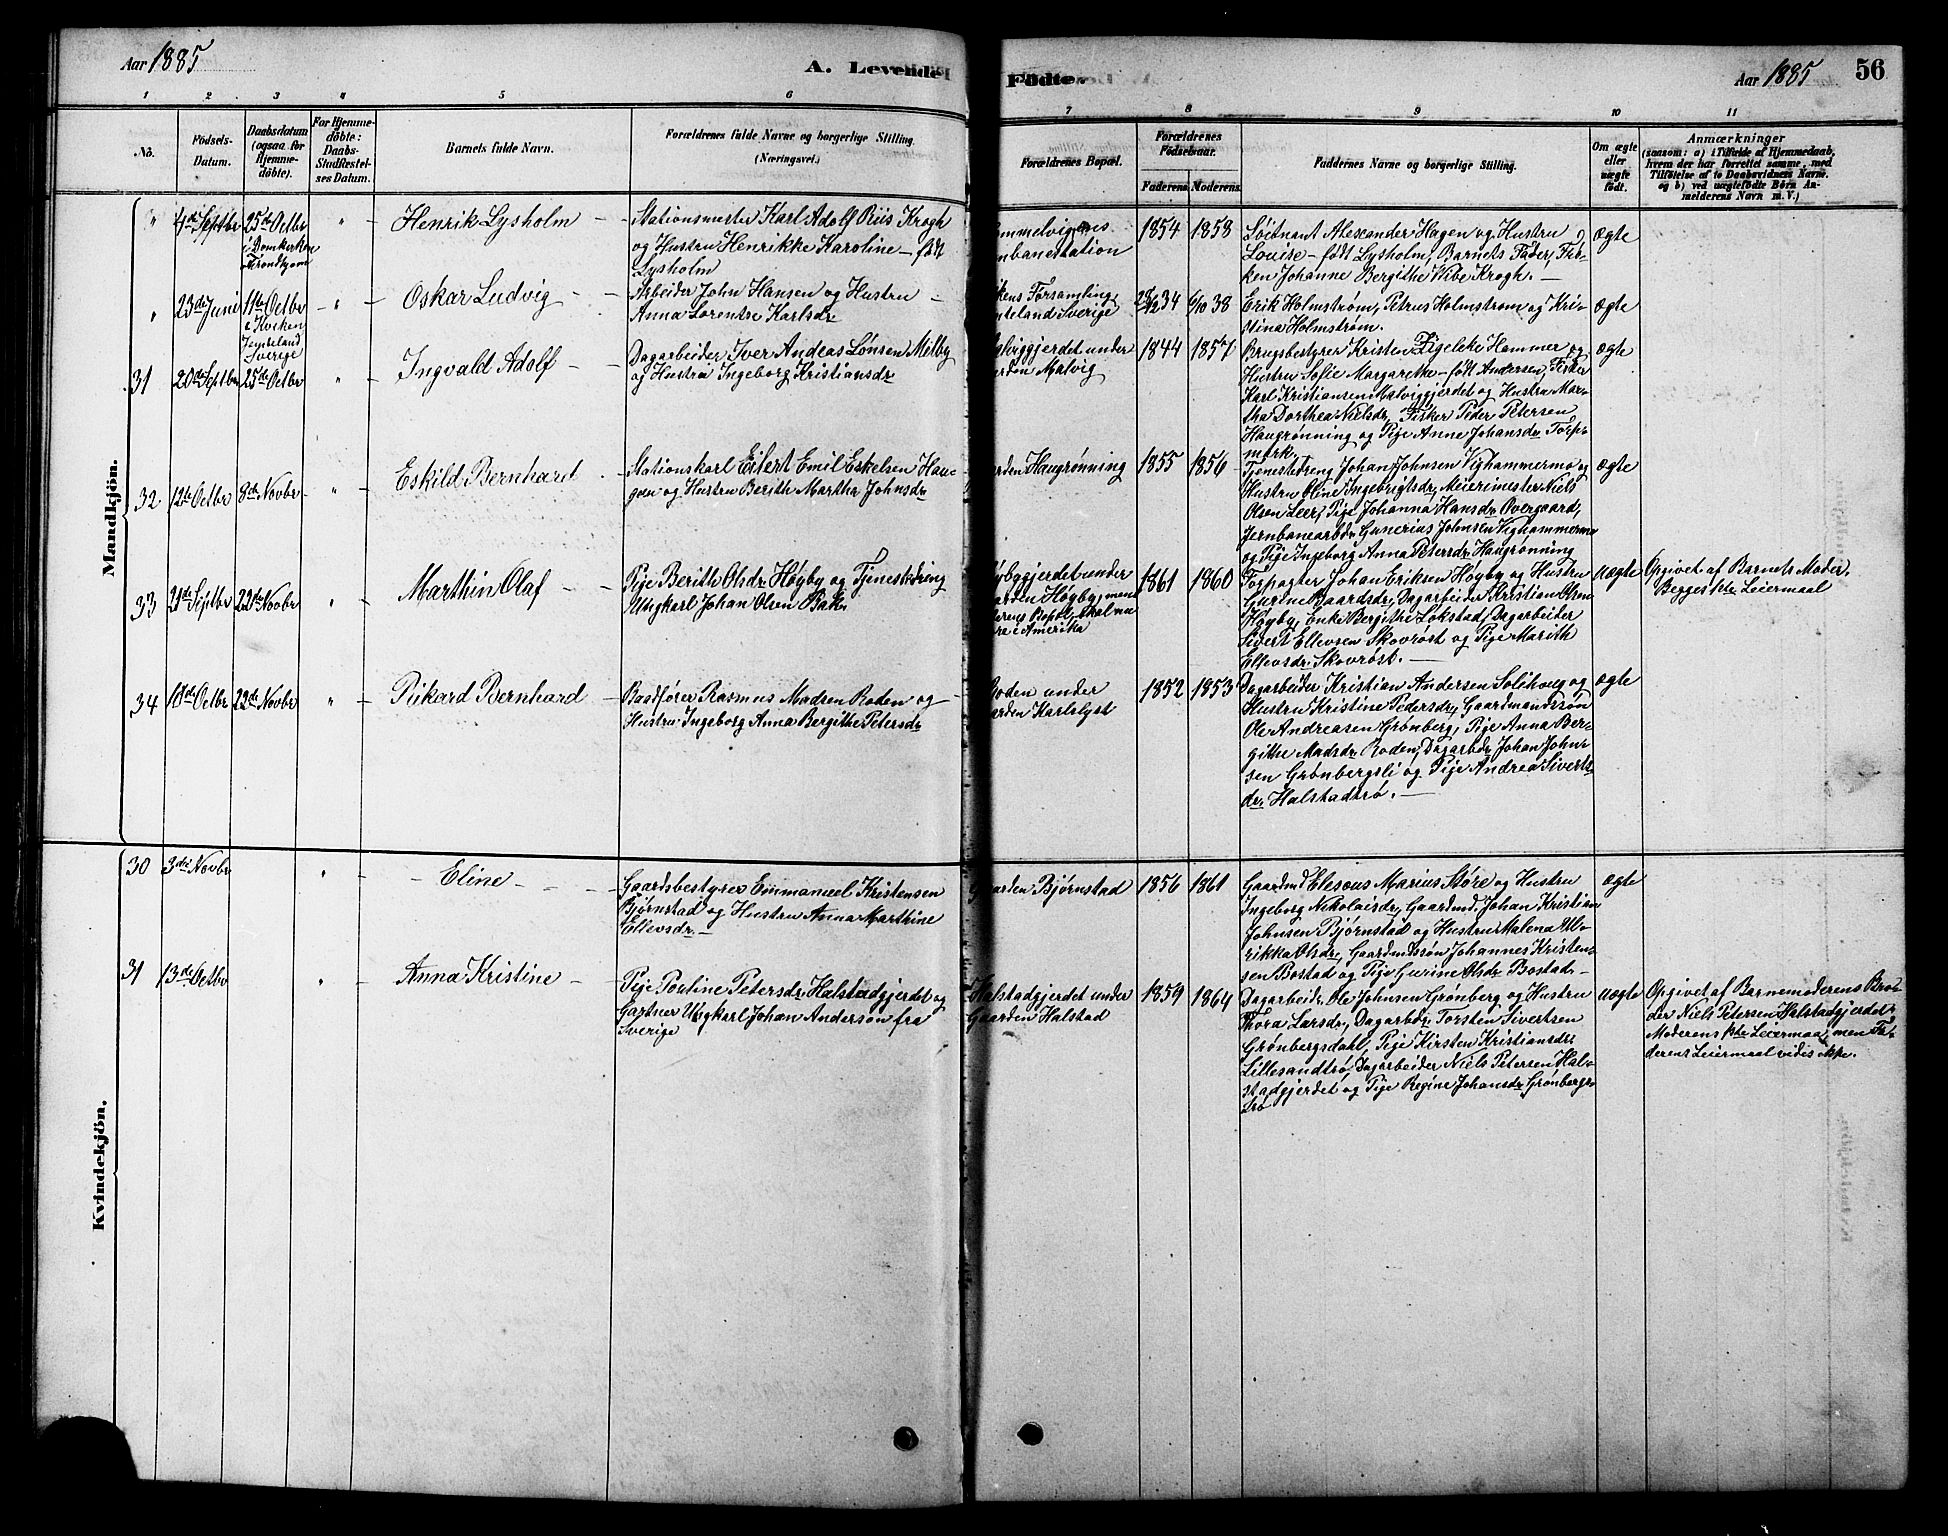 Aar 1885
A. Levende
Fødte.
Aar 1885
56
1
2
3
4
5
6
7
8
9
10
11
No.
Födsels-
Datum.
Daabsdatum
(ogsaa for
Hjemme-
döbte).
For Hjemme-
döbte:
Daabs-
Stadfæstel-
ses Datum.
Barnets fulde Navn.
Forældrenes fulde Navne og borgerlige Stilling.
(Næringsvei.)
Forældrenes Bopæl.
Forældrenes
Födselsaar.
Faderens.
Moderens.
Faddernes Navne og borgerlige Stilling.
Om ægte
eller
uægte
født.
Anmærkninger
(saasom: a) i Tilfælde af Hjemmedaab,
hvem der har forrettet samme, med
Tilföielse af to Daabsvidners Navne.
og b) ved uægtefødte Börn An-
melderens Navn m. V.)
Mandkjön.
" 4de Septbr 25de Octbr " - Henrik Lysholm -
i Domkerken
Trondhjem
Stationsmester Karl Adolf Riis Krogh
og Hustru Henrikke Karoline - født
Lysholm
mmelvigens
nbanestation
1854 1858
Löitnant Alexander Hagen og Hustru
Louise - født Lysholm, Barnets Fader, Frø-
ken Johanne Bergithe Wibe Krogh. -
Ægte
" 23de Juni 11te Octbr " - Oskar Ludvig - -
i Kvicken
Jemteland
Sverige
Arbeider John Hansen og Hustru -
Anna Lorentse Karlsdr
kens Forsamling,
mteland Sverige
28/12 34 6/10 38
Erik Holmstrøm, Petrus Holmstrøm og Kri-
stina Holmstrøm.
Ægte
31 20de Septbr 25de Octbr " Ingvald Adolf - -
Dagarbeider Iver Andeas Lønsen Milby
og Hustru Ingeborg Kristiansdr
lviggjerdet under
arden Malvig
1844 1857
Brugsbestyrer Kristen Zigelche Hammer og
Hustru Sofie Margarethe - født Andersen, Fisker
Karl Kristiansen Malviggjerdet og Hustru Mar-
tha Dorthea Nielsdr, Fisker Peder Petersen
Haugrønning og Pige Anne Johansdr Torp-
mark.
Ægte
32 12te Octbr 8de Novbr - " - Eskild Bernhard -
Stationskarl Eilert Emil Eskelsen Hau-
gan og Hustru Berith Martha Johnsdr
arden Haugrønning
1855 1856
Tjenestdreng Johan Johnsen Vighammermo og
Hustru Oline Ingebrigtsdr, Meierimester Niels
Olsen Leer, Pige Johanna Hansdr Overgaard,
Jernbanearbdr Gunerius Johnsen Vighammermo
og Pige Ingeborg Anna Petersdr Haugrønning
Ægte
33 21de Septbr 22de Novbr " - Marthin Olaf - -
Pige Berith Olsdr Høyby og Tjenestdreng
Ungkarl Johan Olsen Bak
øybygjerdet under
aarden Høyby, men
derens Bopæl skal nu
være i Amerika
1861 1860
Forpagter Johan Eriksen Høyby og Hustru
Gurine Baardsdr, Dagarbeider Kristian Olsen
Høyby, Enke Bergithe Lokstad, Dagarbeider
Sivert Ellevsen Skovrøst og Pige Marith
Ellevsdr Skovrøst. -
Uægte
Opgivet af Barnets Moder.
Begges 1ste Leiermaal
34 18de Octbr 22de Novbr " - Rikard Bernhard -
Baadfører Rasmus Madsen Roden og -
Hustru Ingeborg Anna Bergithe Petersdr
Roden under
aarden Karlslyst
1852 1853
Dagarbeider Kristian Andersen Solihaug og
Hustru Kristine Pedersdr, Gaardmandssøn
Ole Andreasen Grønberg, Pige Anna Ber-
githe Madsdr Roden, Dagarbdr Johan John-
sen Grønbergsli og Pige Andrea Siverts-
dr Halstadtrø. -
Ægte
Kvindekjön.
30 3die Novbr " - Eline - - -
Gaardsbestyrer Emmanuel Kristensen
Bjørnstad og Hustru Anna Marthine
Ellevsdr -
Gaarden Bjørnstad
1856 1861
Gaardmd Elesøus Marius Støre og Hustru
Ingeborg Nikolaisdr, Gaardmd Johan Kristian
Johnsen Bjørnstad og Hustru Malena Ul-
rikka Olsdr, Gaardmdssøn Johannes Kristen-
sen Bostad og Pige Gurine Olsdr Bostad -
Ægte
31 13de Octbr " Anna Kristine - -
Pige Pauline Petersdr Halstadgjerdet og
Gartner Ungkarl Johan Anderson fra
Sverige
Halstadgjerdet under
Gaarden Halstad
1859 1864
Dagarbeidr Ole Johnsen Grønberg og Hustru
Thora Larsdr, Dagarbdr Torsten Sivertsen
Grønbergsdahl, Pige Kirsten Kristiansdr
Lillesandtrø, Dagarbeider Niels Petersen Hal-
stadgjerdet og Pige Regine Johansdr Grønbergs-
trø
Uægte
Opgivet af Barnemoderens Bro-
der Niels Petersen Halstadgjerdet,
Moderens 1ste Leiermaal, men Fa-
derens Leiermaal vides ikke.